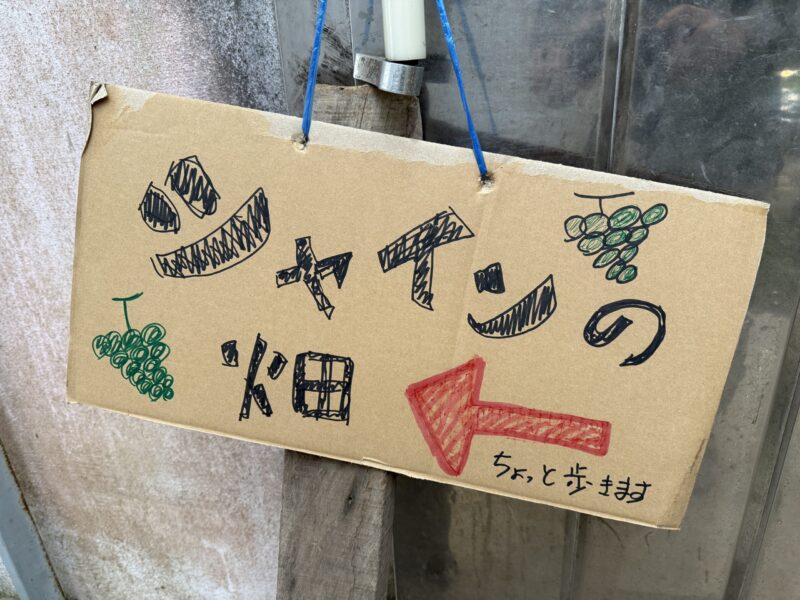 シャインの
畑
ちょっと歩きます